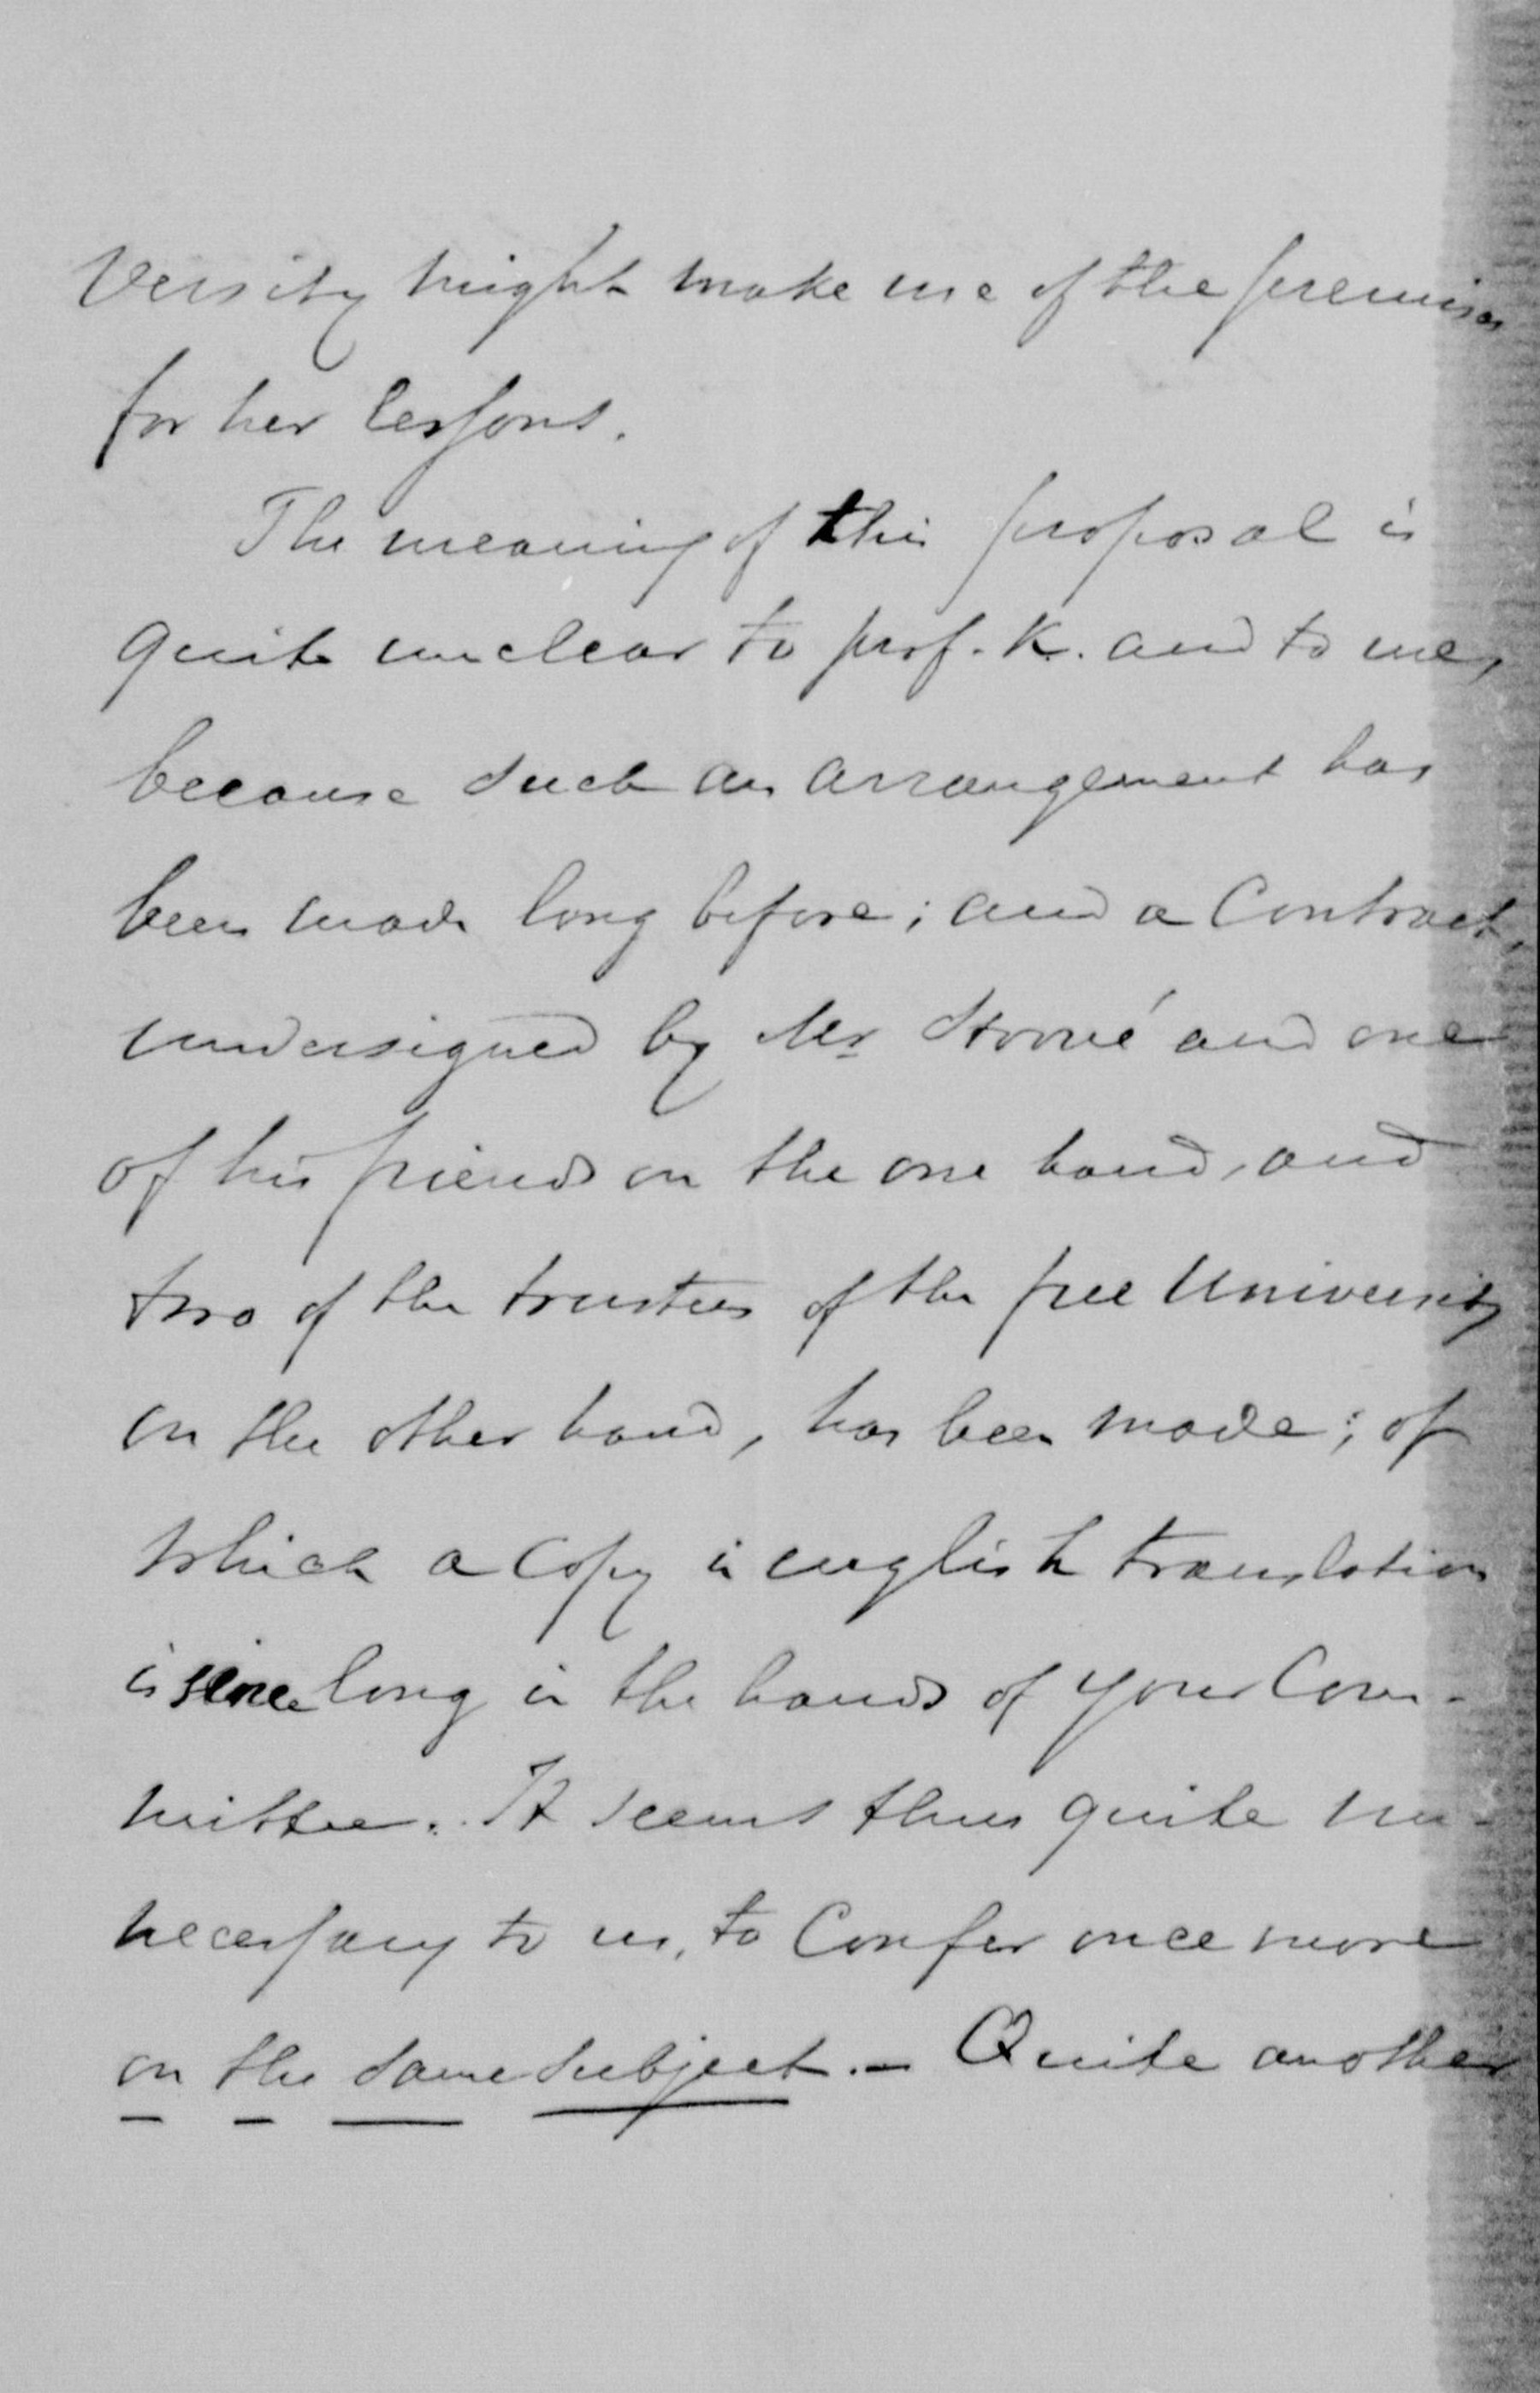 versity might make use of the premises
for her lessons.
The meaning of this proposal is
quite unclear to prof. K. and to me,
because such an arrangement has
been made long before; and a Contract,
undersigned by Mr and one
of his friends on the one hand, and
two of the trustees of the free University
on the other hand, has been made; of
which a copy in english translation
is since long in the hands of your Com-
mittee. It seems thus quite un-
necessary to us, to Confer once more
on the same subject. — Quite another